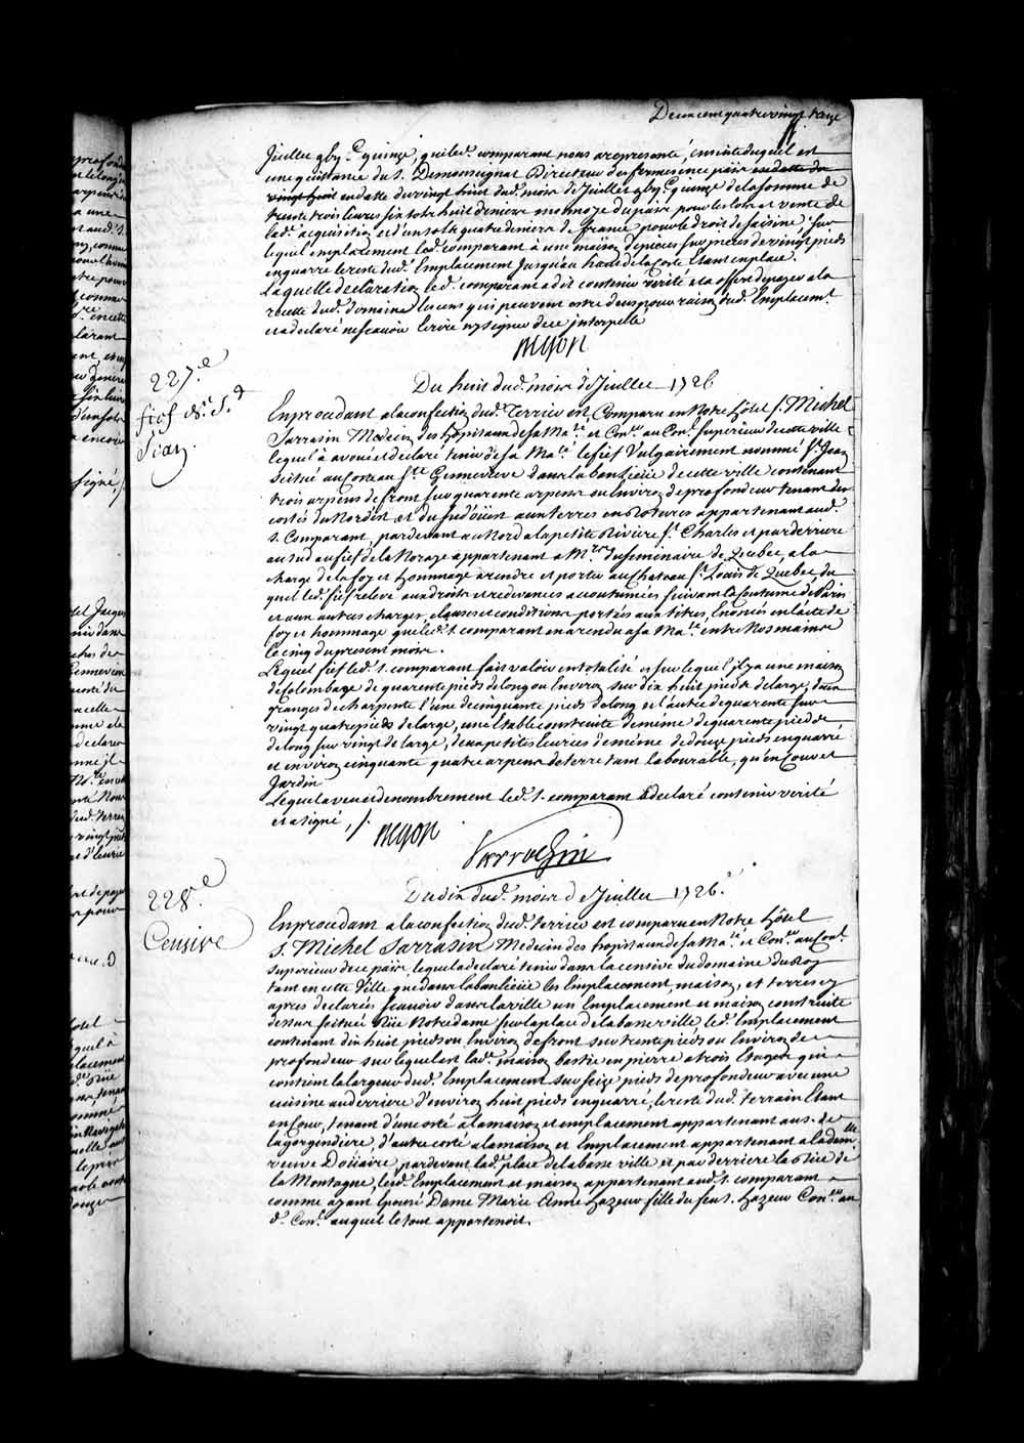 Deux cent quatre vingt treize
Juillet gby.c quinze, que led. comparant nous a representé, ensuite duquel est
une quittance du s. Demonseignat Directeur des fermes en ce païs
en datte du vingt huit dud. mois de Juillet gby.c quinze de la somme de
trente trois livres six sols huit deniers monnoye du païs pour les lots et vente de
lad. acquisition et d'un sol quatre deniers de france pour le droit de saisine, sur
lequel emplacement led. comparant à une maison de pieces sur pieces de vingt pieds
en quarré le reste dud. Emplacement Jusqu'au haut de la Coste Etant en place.
Laquelle declaration led. comparant a dit contenir verité et a offert de payer a la
recette dud. domaine les cens qui peuvent estre deus pour raison dud. Emplacem.t
et a declaré ne scavoir lerire ny signer de ce interpellé
227.e
fief de S.t
Jean
Du huit dud. mois de Juillet 1726
En procedant a la confection dud. Terrier est Comparu en Notre hôtel s. Michel
Sarrasin Medecin des hôpitaux de sa Ma.té et Con.er au Con.l superieur de cette ville
lequel à avoué et declaré tenir de sa Ma.té le fief Vulgairement nommé S.t Jean
scitué au Coteau S.te Gennevieve dans la banlieüe de cette ville contenant
trois arpens de front sur quarente arpens ou Environ de profondeur tenant des
costés du Nordest et du Sud'oüest aux terres en Rotures appartenant aud.
s. Comparant, par devant au Nord a la petite Riviere S.t Charles et par derriere
au sud au fief de la Noraye appartenant a M.rs du seminaire de Quebec, a la
charge de la foy et hommage a rendre et porter au Chateau S.t Louis de Quebec, du
quel led. fief releve aux droits et redevances accoutumées suivant la Coutume de Paris
et aux autres charges, clauses et conditions portés aux titres, Enoncés en l'acte de
foy et hommage que led. s. comparant en a rendu a sa Ma.té entre Nos mains
le cinq du present mois.
Lequel fief led. s. comparant fait valoir en totalité et sur lequel il y a une maison
de Colombage de quarente pieds de long ou Environ sur dix huit pieds de large, deux
granges de charpente l'une de cinquante pieds de long et l'autre de quarente sur
vingt quatre pieds de large, une Etable construite de meme de quarente pieds de
de long sur vingt de large, deux petites Ecuries de même de douze pieds en quarré
et environ cinquante quatre arpens de terre tant labourable, qu'en Cour et
Jardin
Lequel aveu et denombrement led. s. comparant a declaré contenir verité
et a signé, /.
Sarrazin
228.e
Censive
Du dix dud. mois de Juillet 1726.
En procedant a la confection dud. terrier est comparu en Notre hôtel
s. Michel Sarrasin Medecin des hopitaux de sa Ma.té et Con.er au Con.l
superieur de ce païs, lequel a declaré tenir dans la censive du domaine du Roy
tant en cette Ville que dans la banlieüe les Emplacement, maison, et terres cy
apres declarés scavoir dans la ville un Emplacement et maison construite
dessus scituée Rüe Notre dame sur la place de la basse ville, led. Emplacement
contenant dix huit pieds ou Environ de front sur trente pieds ou Environ de
profondeur sur lequel est lad. maison bastie en pierre a trois Etages qui
contient la largeur dud. Emplacement sur seize pieds de profondeur avec une
cuisine au derriere d'environ huit pieds en quarré, le reste dud. terrain Etant
en Cour, tenant d'une coté a la maison et emplacement appartenant au s. de
la gorgendiere, d'autre corté a la maison et Emplacement appartenant a la dem.lle
veuve Doüaire par devant lad. place de la basse ville et par derriere la Rüe de
la Montagne, led. Emplacement et maison appartenant aud. s. comparant
comme ayant Epousé Dame Marie Anne hazeur fille du feu s. hazeur Con.er au
d. Con.l auquel le tout appartenoit.